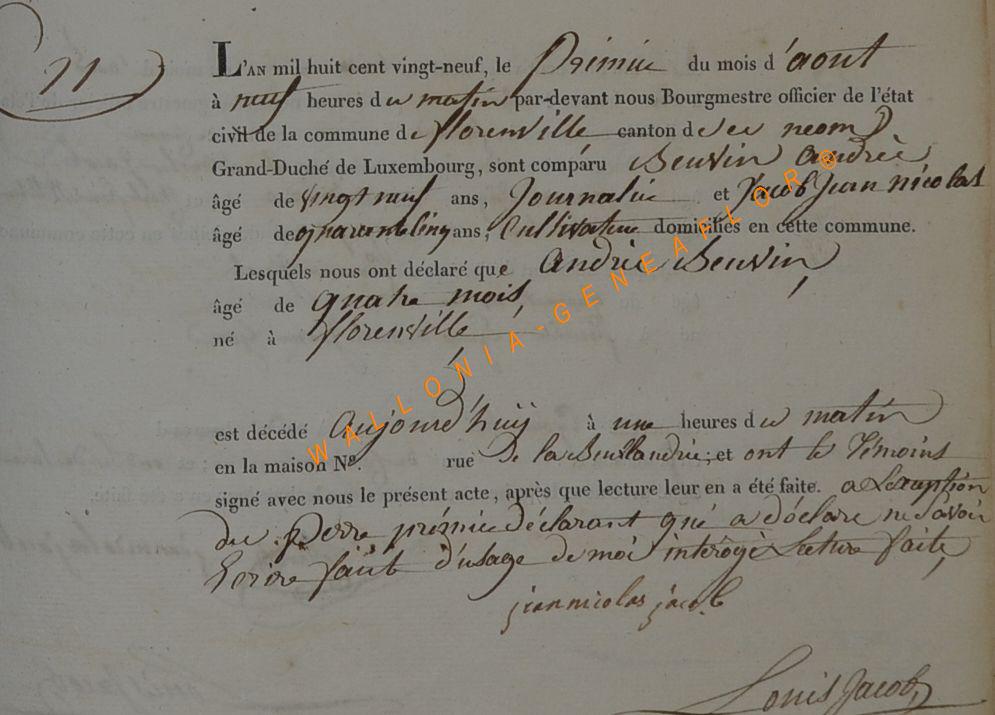 11
L'AN mil huit cent vingt-neuf, le Prémier du mois d'aout
à neuf heures du matin par-devant nous Bourgmestre officier de l'état
civil de la commune de florenville canton de ce neom
Grand-Duché de Luxembourg, sont comparu Beuvin andré
âgé de vingt neuf ans, Journalier et Jacob Jean nicolas
âgé de quarente cinq ans, Cultivateur domiciliés en cette commune.
Lesquels nous ont déclaré que andré Beuvin
âgé de quatre mois,
né à florenville
est décédé aujourd'huy à une heures du matin
en la maison N°. rue De la; et ont le témoins
signé avec nous le présent acte, après que lecture leur en a été faite. a Lexception
du Perre prémier déclarant qué a déclaré ne savoir
Ecrire faut d'usage de moi intérogé Lecture faite,
jean nicolas jacob
Louis Jacob
WALLONIA-GENEAFLOR®